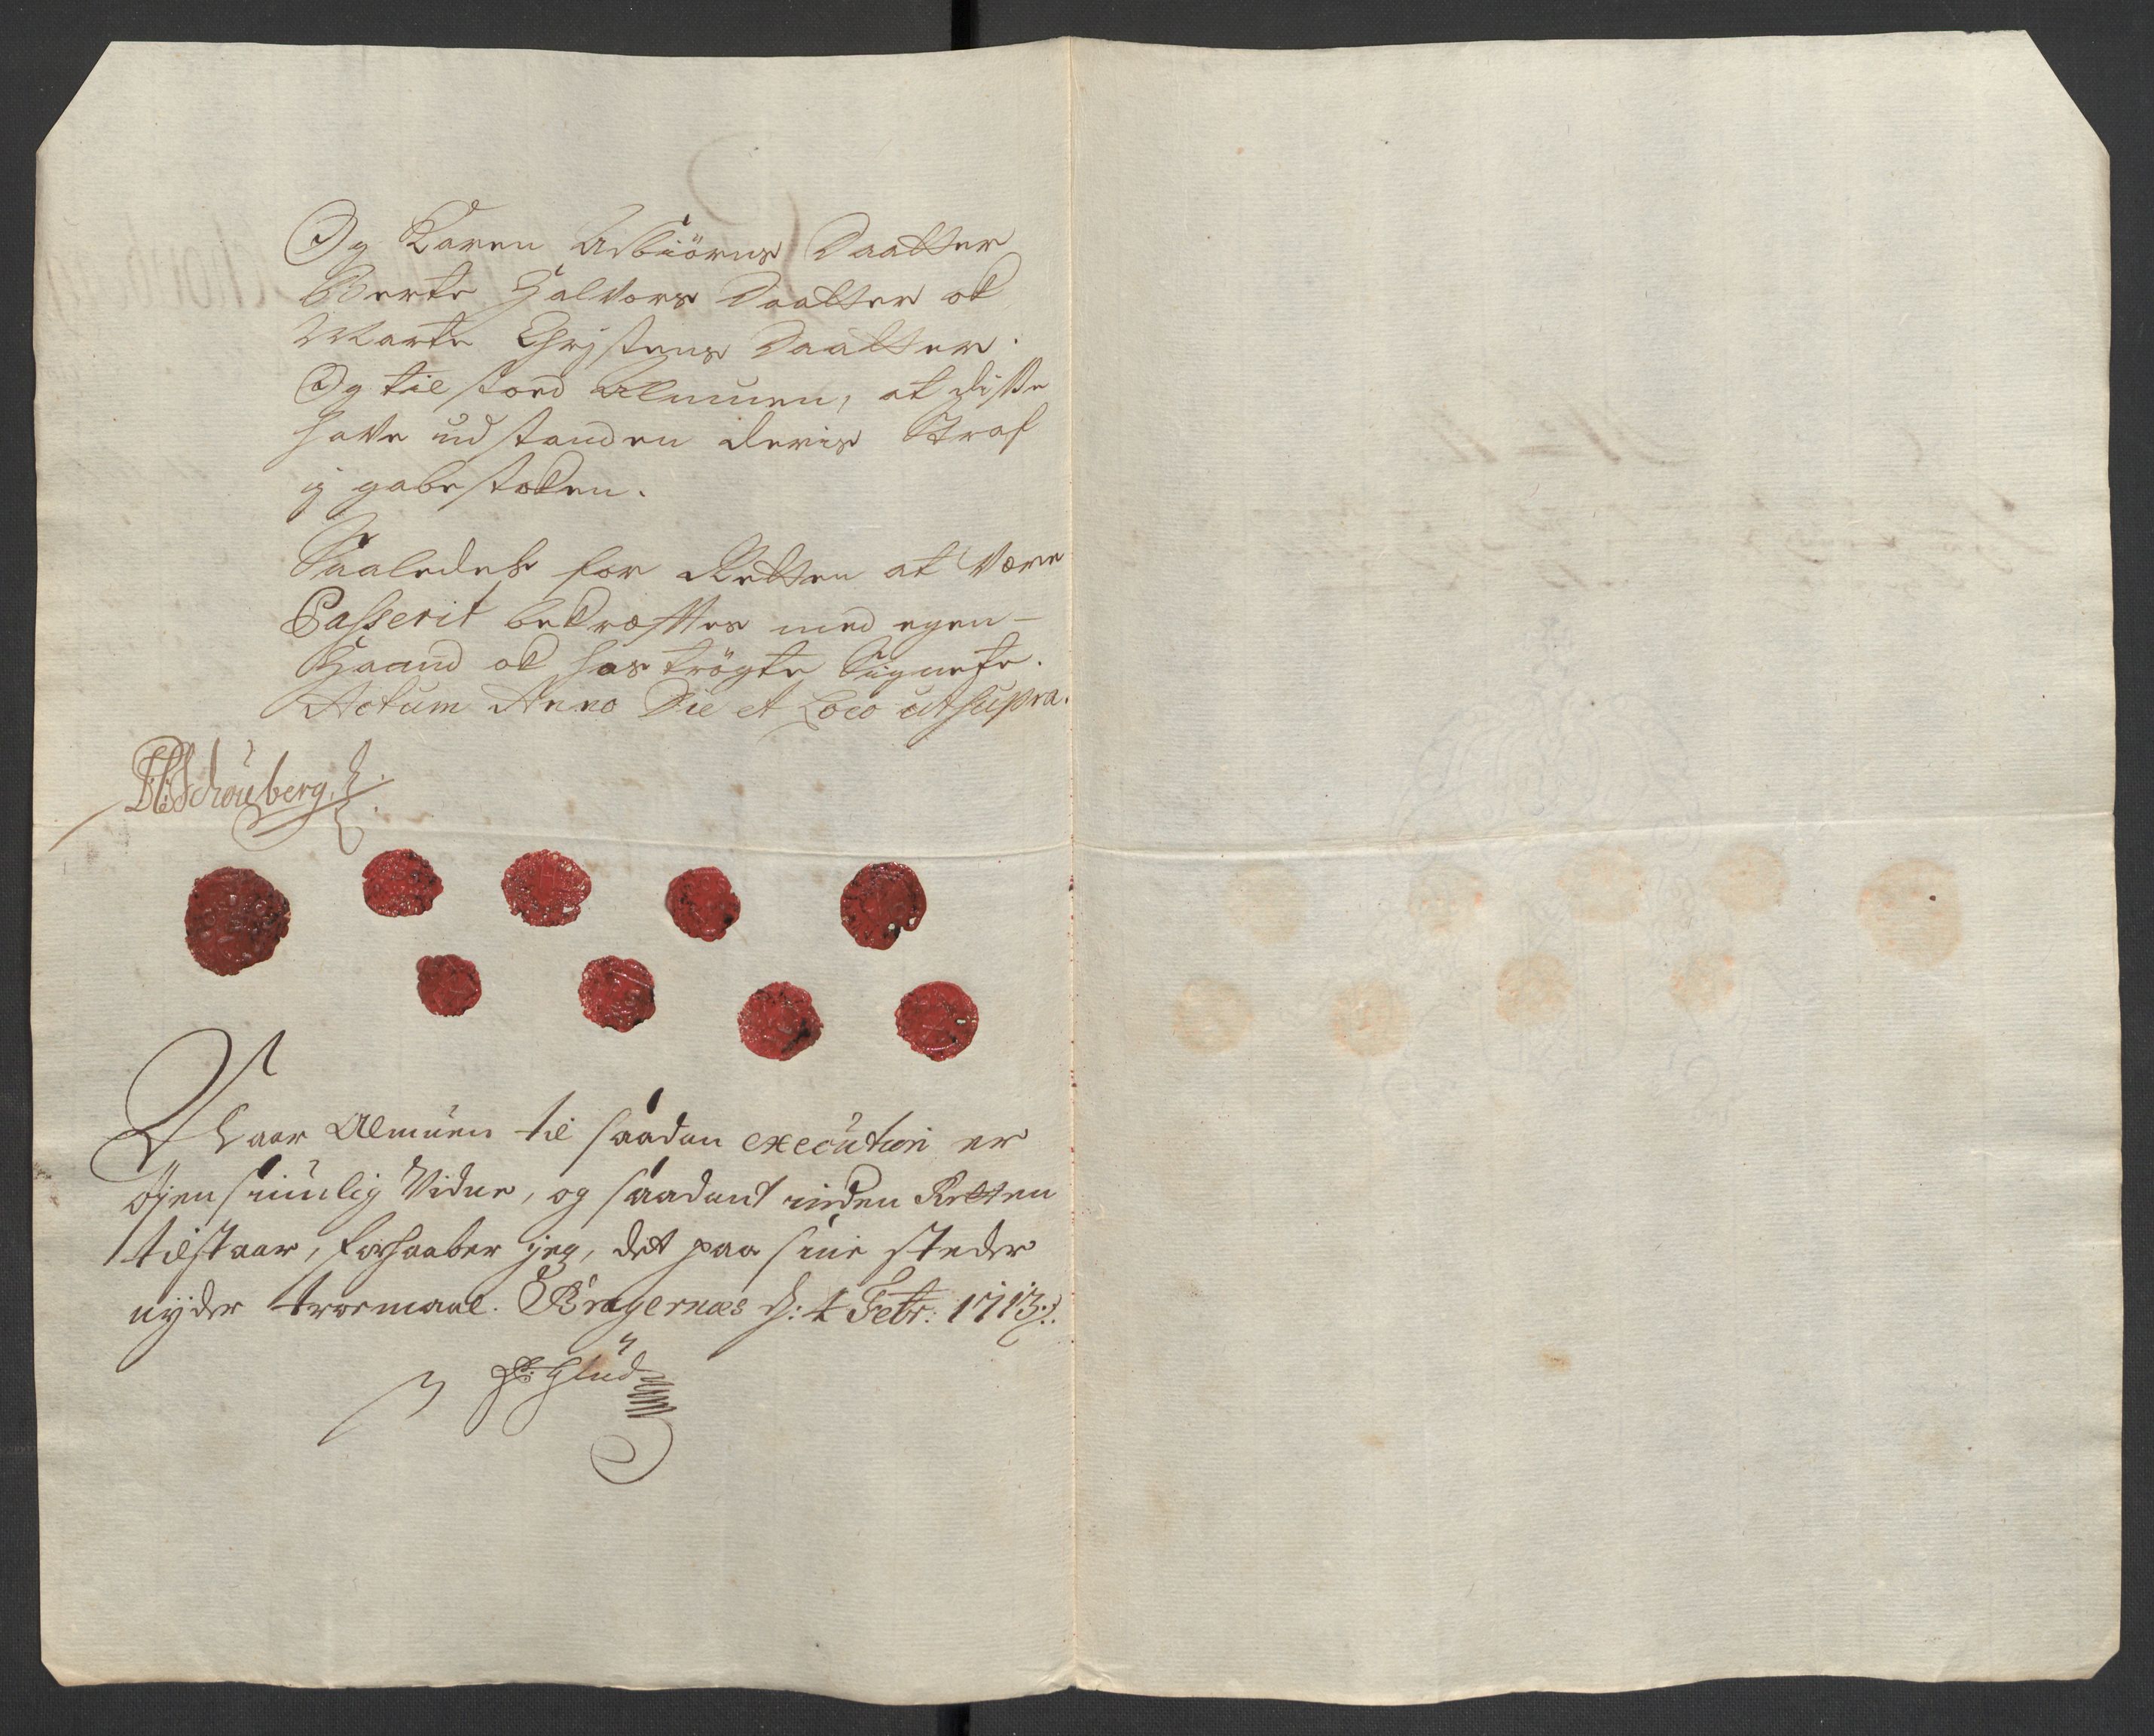 Og Karen Asbiörns Daatter
Berte Halvors Daatter ok
Marte Chrjstens Daatter.
Og til stoed Almuen, at disse
have udstanden deris Straf
ij gabestoken.
Saaledes for Retten at være
Passerit bekræfftes med egen-
Haand ok hoströgte Signete.
Actum Anno Die et Loco ut supra.
Schouberg
Naar Almuen til saadan execution er
öjensiunlig Vidne, og saadant inden Retten
tilstaar, forhaaber jeg, det paa sine steder
nyder troemaal. Bragernæs d: 4 Febr: 1713.
Glud